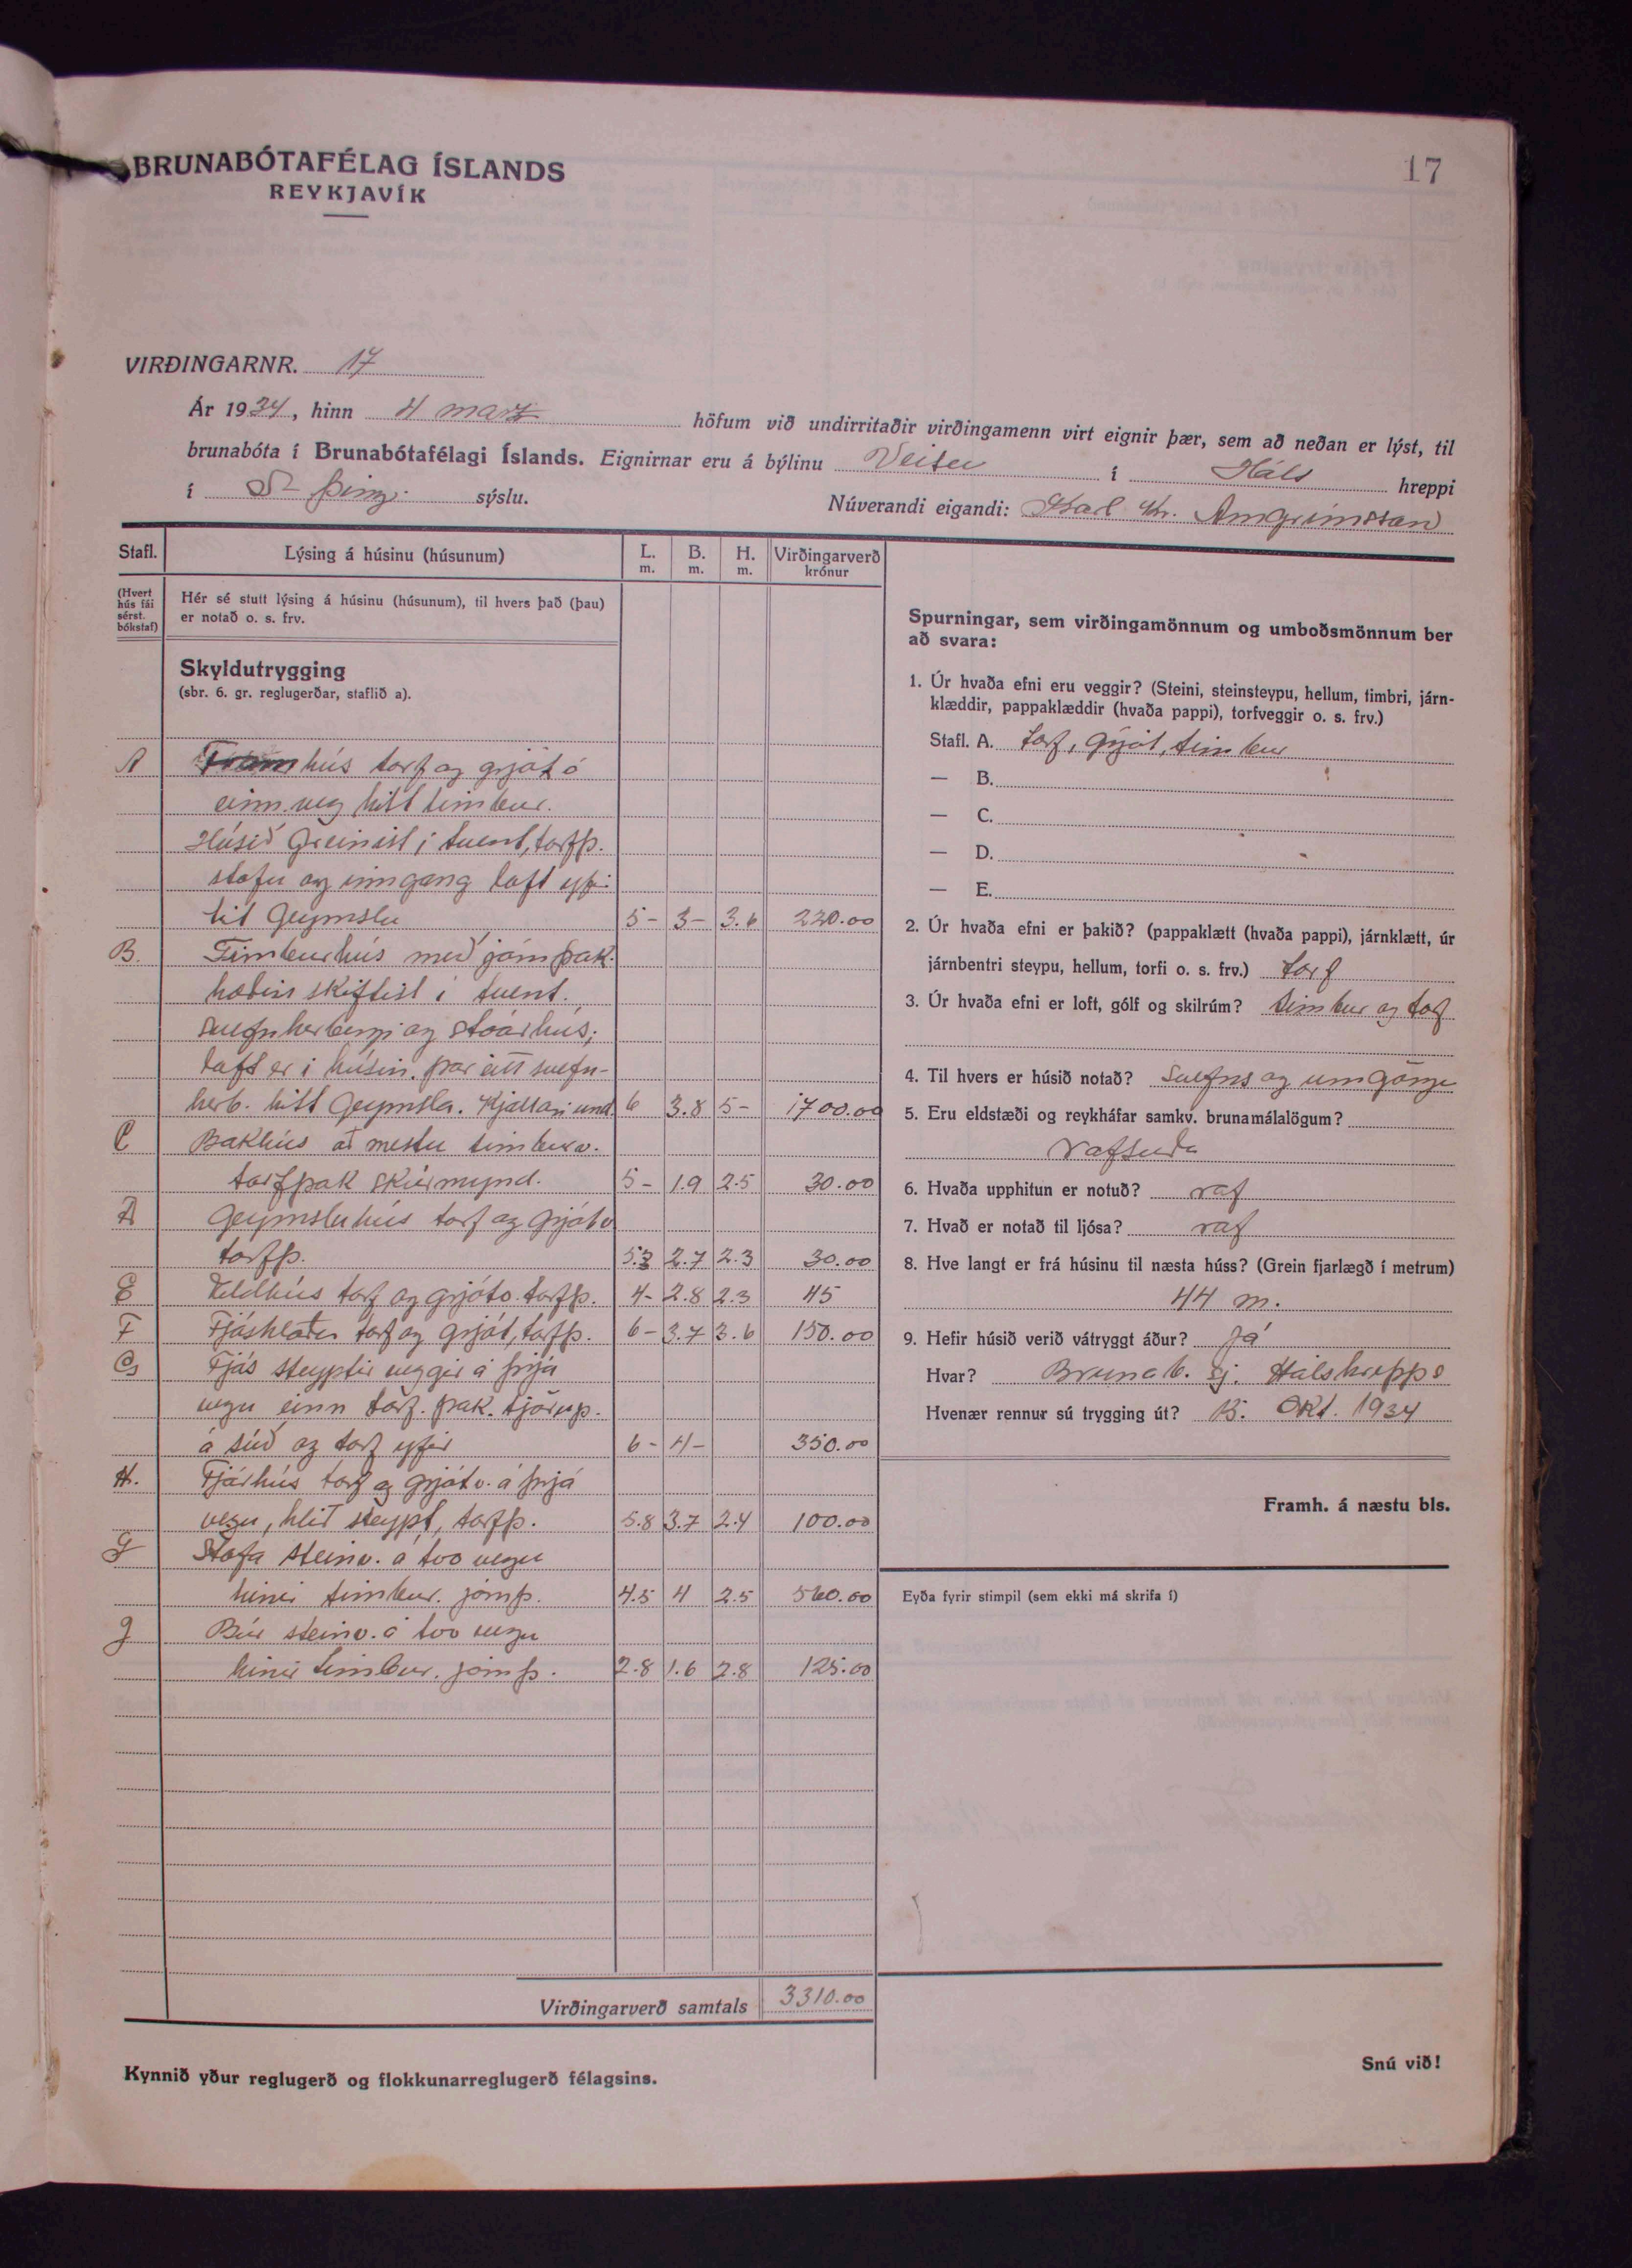 17
BRUNABÓTAFÉLAG ÍSLANDS
REYKJAVÍK
VIRÐINGARNR. 17
Ár 1934, hinn 4 marz höfum við undirritaðir virðingamenn virt eignir þær, sem að neðan er lýst, til
brunabóta í Brunabótafélagi Íslands. Eignirnar eru á býlinu Veisu í Háls hreppi
í S-Þing. sýslu. Núverandi eigandi: Karl Kr. Arngrímsson
Stafl. Lýsing á húsinu (húsunum) L. m. B. m. H. m. Virðingarverð krónur
(Hvert hús fái sérst. bókstaf)
Hér sé stutt lýsing á húsinu (húsunum), til hvers það (þau)
er notað o. s. frv.
Skyldutrygging
(sbr. 6. gr. reglugerðar, staflið a).
A Framhús torf og grjót á
einn veg hitt timbur.
Húsið greinist í tvent, torfþ.
stofu og inngang loft yfir
til geymslu 5- 3- 3.6 220.00
B. Timburhús með járnþak.
hæðin skiftist í tvent.
svefnherbergi og stóarhús;
loft er í húsin. þar eitt svefn-
herb. hitt geymsla. Kjallari und. 6 3.8 5- 1700.00
C Bakhús að mestu timburv.
torfþak skúrmynd. 5- 1.9 2.5 30.00
D Geymsluhús torf og grjótv
torfþ. 5.3 2.7 2.3 30.00
E Eldhús torf og grjótv. torfþ. 4- 2.8 2.3 45
F Fjáshlaða torf og grjót, torfþ. 6- 3.7 3.6 150.00
G Fjós steyptir veggir á þrjá
vegu einn torf. þak. tjörup.
á súð og torf yfir 6- 4- 350.00
H. Fjárhús torf og grjótv. á þrjá
vegu, hlið steypt, torfþ. 5.8 3.7 2.4 100.00
Stofa steinv. á tvo vegu
hinir timbur. járnþ. 4.5 4 2.5 560.00
J Búr steinv. á tvo vegu
hinir timbur. járnþ. 2.8 1.6 2.8 125.00
Virðingarverð samtals 3310.00
Kynnið yður reglugerð og flokkunarreglugerð félagsins.
Spurningar, sem virðingamönnum og umboðsmönnum ber
að svara:
1. Úr hvaða efni eru veggir? (Steini, steinsteypu, hellum, timbri, járn-
klæddir, pappaklæddir (hvaða pappi), torfveggir o. s. frv.)
Stafl. A. torf, grjót, timbur
— B.
— C.
— D.
— E.
2. Úr hvaða efni er þakið? (pappaklætt (hvaða pappi), járnklætt, úr
járnbentri steypu, hellum, torfi o. s. frv.) torf
3. Úr hvaða efni er loft, gólf og skilrúm? timbur og torf
4. Til hvers er húsið notað? Svefns og umgöngu
5. Eru eldstæði og reykháfar samkv. brunamálalögum?
rafsuða
6. Hvaða upphitun er notuð? raf
7. Hvað er notað til ljósa? raf
8. Hve langt er frá húsinu til næsta húss? (Grein fjarlægð í metrum)
44 m.
9. Hefir húsið verið vátryggt áður? Já
Hvar? Brunab. sj. Hálshrepps
Hvenær rennur sú trygging út? 15. Okt. 1934
Framh. á næstu bls.
Eyða fyrir stimpil (sem ekki má skrifa í)
Snú við!